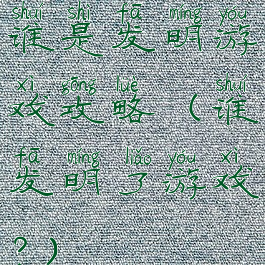 shuí shì fā míng yóu
谁是发明游
xì gōng lüè shuí
戏攻略(谁
fā míng liǎo yóu xì
发明了游戏
?)